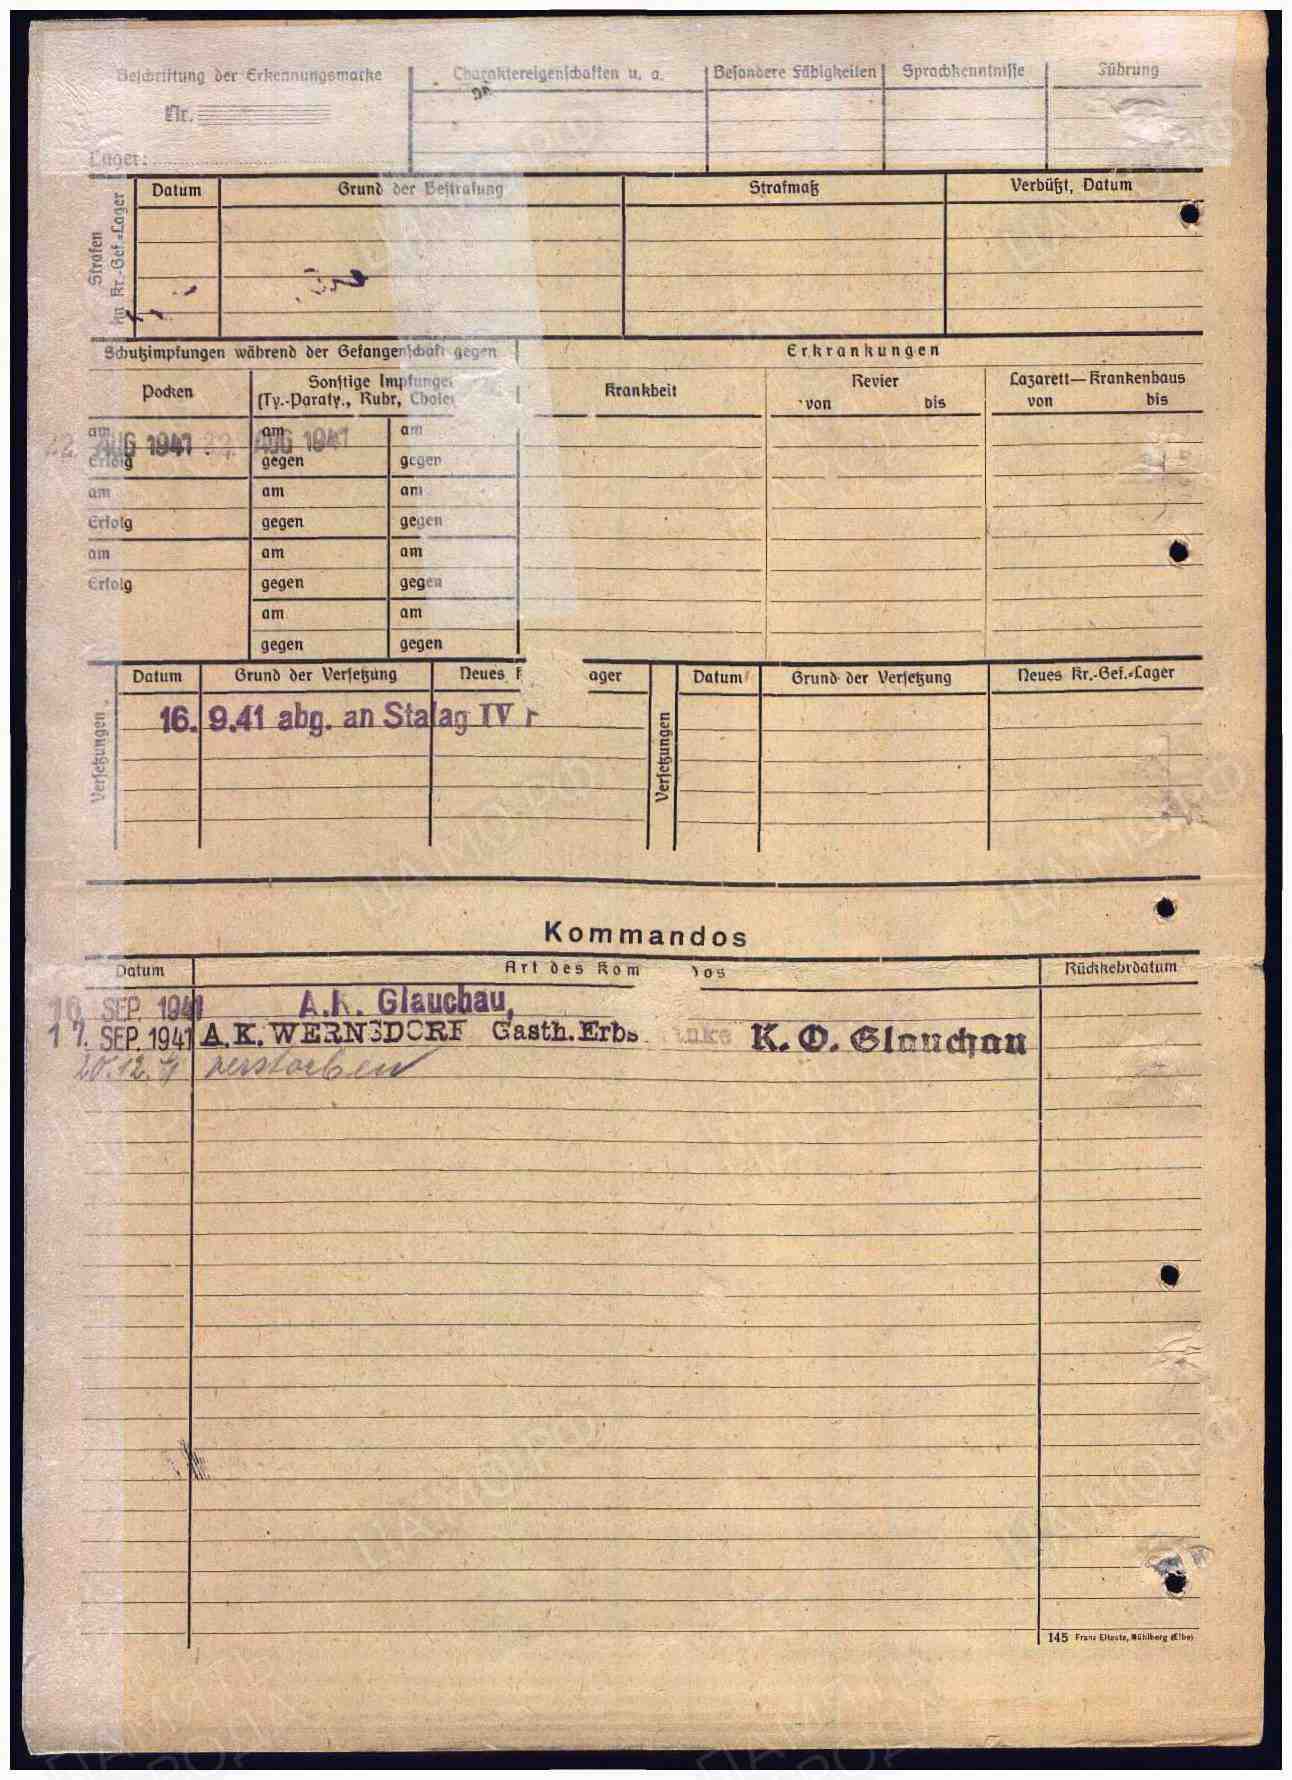 Beschriftung der Erkennungsmarke
Charaktereigenschaften u. a.
Besondere Fähigkeiten
Sprachkenntnisse
Führung
Nr.
Lager:
Strafen
im Kr.-Gef.-Lager
Datum
Grund der Bestrafung
Strafmaß
Verbüßt, Datum
Schutzimpfungen während der Gefangenschaft gegen
Erkrankungen
Pocken
Sonstige Impfunge
(Ty.-Paraty., Ruhr, Chole
Krankheit
Revier
von bis
Lazarett—Krankenhaus
von bis
am am am
22. AUG 1941 22. AUG 1941
Erfolg gegen gegen
am am am
Erfolg gegen gegen
am am am
Erfolg gegen gegen
am am
gegen gegen
Versetzungen
Datum Grund der Versetzung Neues ager
16. 9.41 abg. an Stalag IV
Versetzungen
Datum Grund der Versetzung Neues Kr.-Gef.-Lager
Kommandos
Datum Art des Kom dos Rückkehrdatum
16. SEP. 1941 A.K. Glauchau,
17. SEP. 1941 A.K. WERNSDORF Gasth. Erbs K. O. Glauchau
20.12.41 verstorben
145 Franz Elteste, Mühlberg (Elbe)
ЦАМО РФ
ПАМЯТЬ
НАРОДА